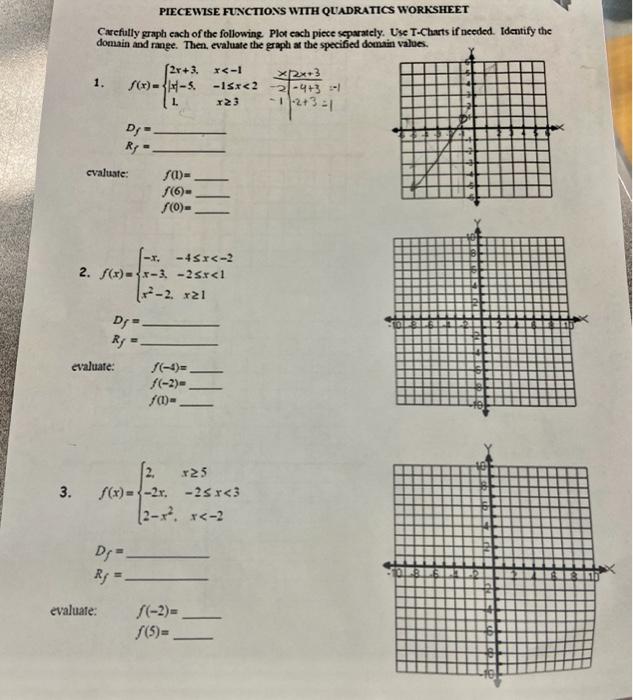 PIECEWISE FUNCTIONS WITH QUADRATICS WORKSHEET
Carefully graph each of the following. Plot each piece separately. Use T-Charts if needed. Identify the
domain and range. Then, evaluate the graph at the specified domain values.
1. f(x)= { 2x+3, x<-1
|x|-5, -1≤x<2
1, x≥3
x|2x+3
-2|-4+3 =-1
-1|-2+3=1
D_f = ______
R_f = ______
evaluate: f(1)= ____
f(6)= ____
f(0)= ____
2. f(x)= { -x, -4≤x<-2
x-3, -2≤x<1
x²-2, x≥1
D_f = ______
R_f = ______
evaluate: f(-4)= ____
f(-2)= ____
f(1)= ____
3. f(x)= { 2, x≥5
-2x, -2≤x<3
2-x², x<-2
D_f = ______
R_f = ______
evaluate: f(-2)= ____
f(5)= ____